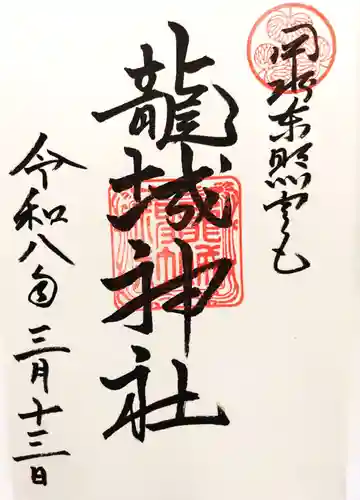 岡崎東照宮
龍城神社
令和八年三月十三日